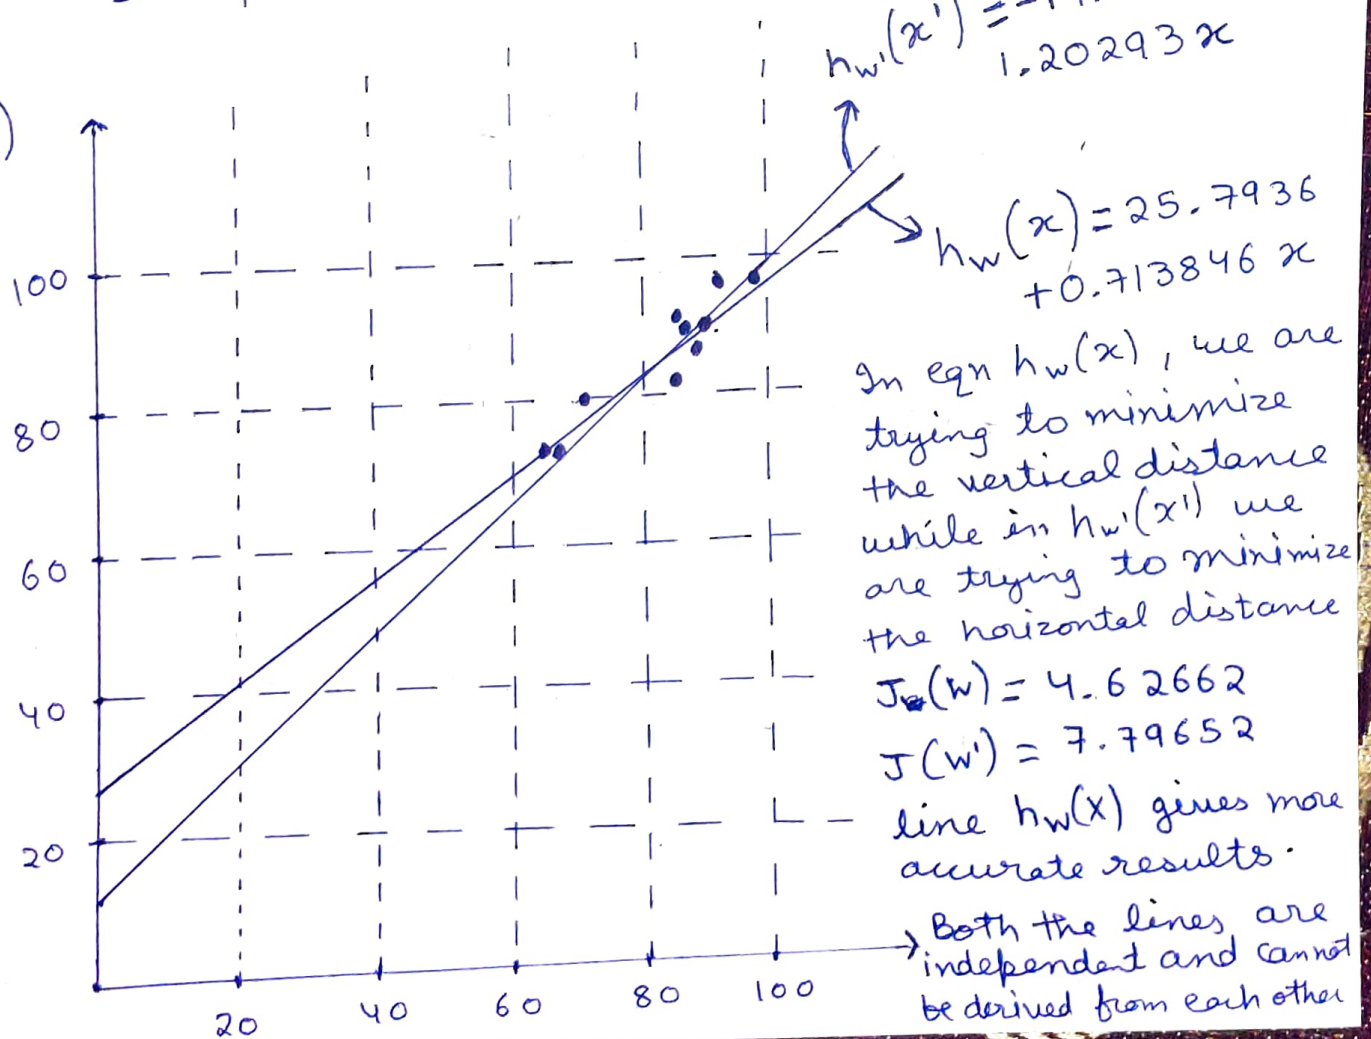 )
hw'(x') = -
1.20293x
hw(x) = 25.7936
+0.713846 x
100
80
60
40
20
20 40 60 80 100
In eqn hw(x), we are
trying to minimize
the vertical distance
while in hw'(x') we
are trying to minimize
the horizontal distance
J(w) = 4.62662
J(w') = 7.79652
line hw(x) gives more
accurate results.
Both the lines are
independent and cannot
be derived from each other